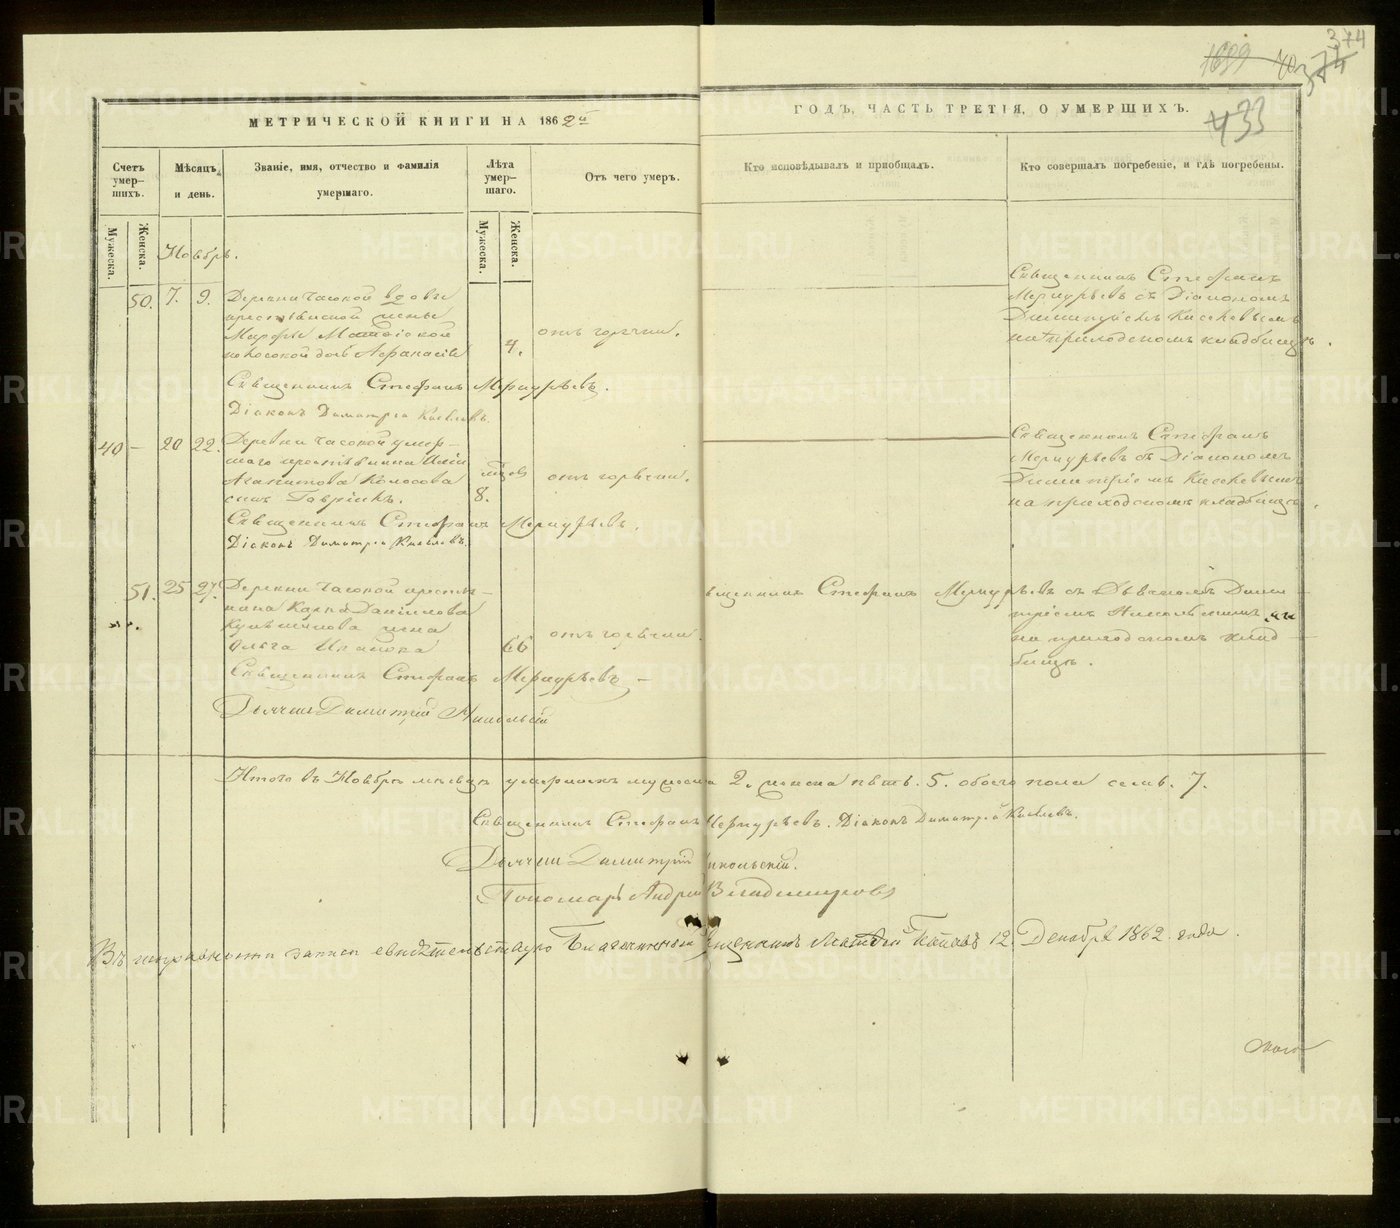 374
1699
433
МЕТРИЧЕСКОЙ КНИГИ НА 1862й
ГОДЪ, ЧАСТЬ ТРЕТІЯ, О УМЕРШИХЪ.
Счетъ умер-
шихъ.
Мѣсяцъ
и день.
Званіе, имя, отчество и фамилія
умершаго.
Лѣта
умер-
шаго.
Отъ чего умеръ.
Кто исповѣдывалъ и приобщалъ.
Кто совершалъ погребеніе, и гдѣ погребены.
Мужеска.
Женска.
Мужеска.
Женска.
Ноябрь.
50. 7. 9. Деревни Часовой вдовы
крестьянской жены
Марфы
дочь Афанасія
4.
отъ горячки.
Священникъ Стефанъ
Меркурьевъ съ Діакономъ
Димитріемъ Киселевымъ
на приходскомъ кладбищѣ.
Священникъ Стефанъ Меркурьевъ.
Діаконъ Димитрій Киселевъ.
40 – 20 22. Деревни Часовой умер-
шаго крестьянина Иліи
Агапитова Колосова
сынъ Гавріилъ.
8.
отъ горячки.
Священникъ Стефанъ
Меркурьевъ съ Діакономъ
Димитріемъ Киселевымъ
на приходскомъ кладбищѣ.
Священникъ Стефанъ Меркурьевъ.
Діаконъ Димитрій Киселевъ.
51. 25 27. Деревни Часовой крестья-
нина Карпа Данилова
жена
Ольга Иванова
66
отъ горячки.
Священникъ Стефанъ Меркурьевъ съ Дьячкомъ Дими-
тріемъ Никольскимъ
на приходскомъ клад-
бищѣ.
Священникъ Стефанъ Меркурьевъ
Дьячекъ Димитрій Никольскій
Итого въ Ноябрѣ мѣсяцѣ умершихъ мужеска 2. женска пять. 5. обоего пола семь. 7.
Священникъ Стефанъ Меркурьевъ. Діаконъ Димитрій Киселевъ.
Дьячекъ Димитрій Никольскій.
Пономарь Андрей Владимировъ
Въ исправности записи свидѣтельствую Благочинный Священникъ Матвей Поповъ 12. Декабря 1862. года.
METRIKI.GASO-URAL.RU